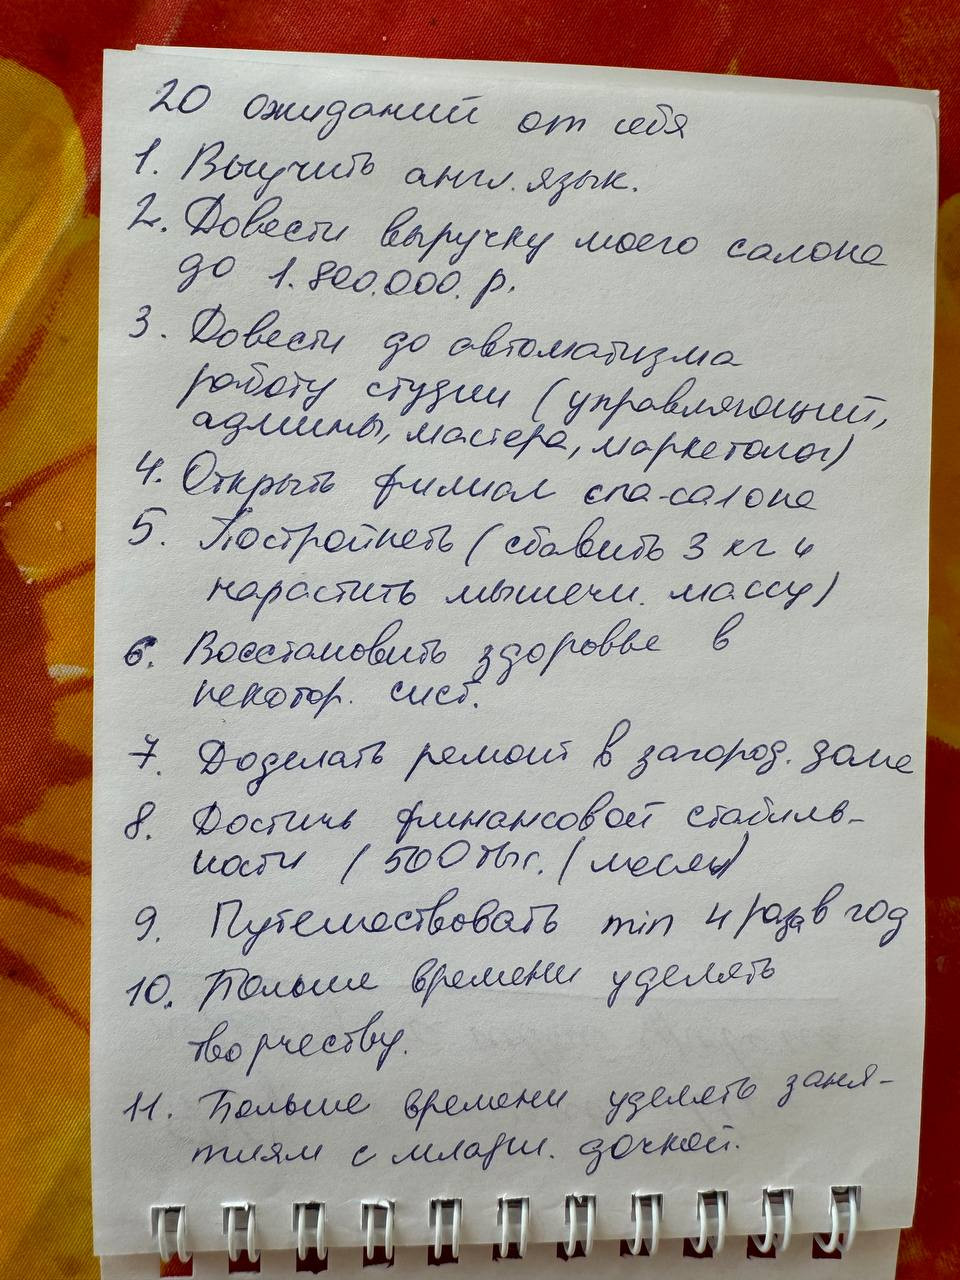 20 ожиданий от себя
1. Выучить англ. язык.
2. Довести выручку моего салона
до 1.800.000. р.
3. Довести до автоматизма
работу студии (управляющий,
админы, мастера, маркетолог)
4. Открыть филиал спа-салона
5. Постройнеть (сбавить 3 кг и
нарастить мышечн. массу)
6. Восстановить здоровье в
некотор. сист.
7. Доделать ремонт в загород. доме
8. Достичь финансовой стабиль-
ности (500 тыс. / месяц)
9. Путешествовать min 4 раза в год
10. Больше времени уделять
творчеству.
11. Больше времени уделять заня-
тиям с младш. дочкой.